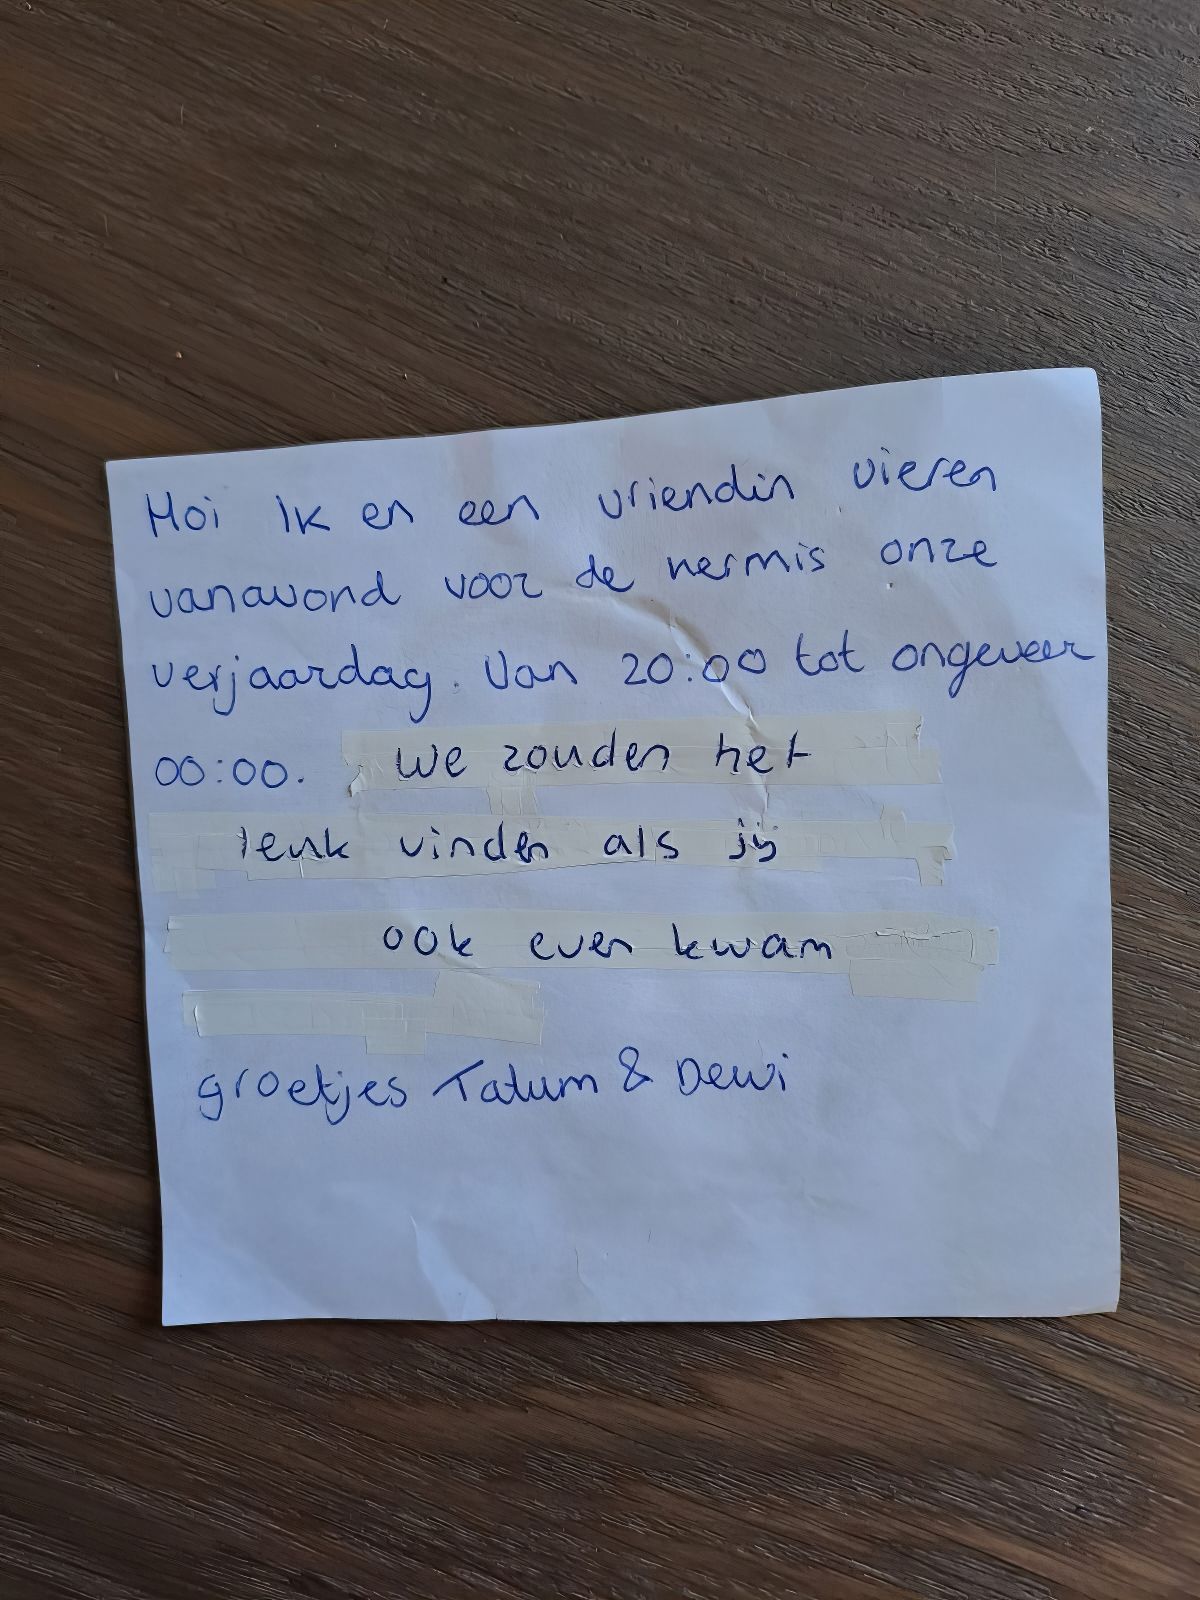 Hoi Ik en een vriendin vieren
vanavond voor de kermis onze
verjaardag. Van 20:00 tot ongeveer
00:00. We zouden het
leuk vinden als jij
ook even kwam
groetjes Tatum & Dewi